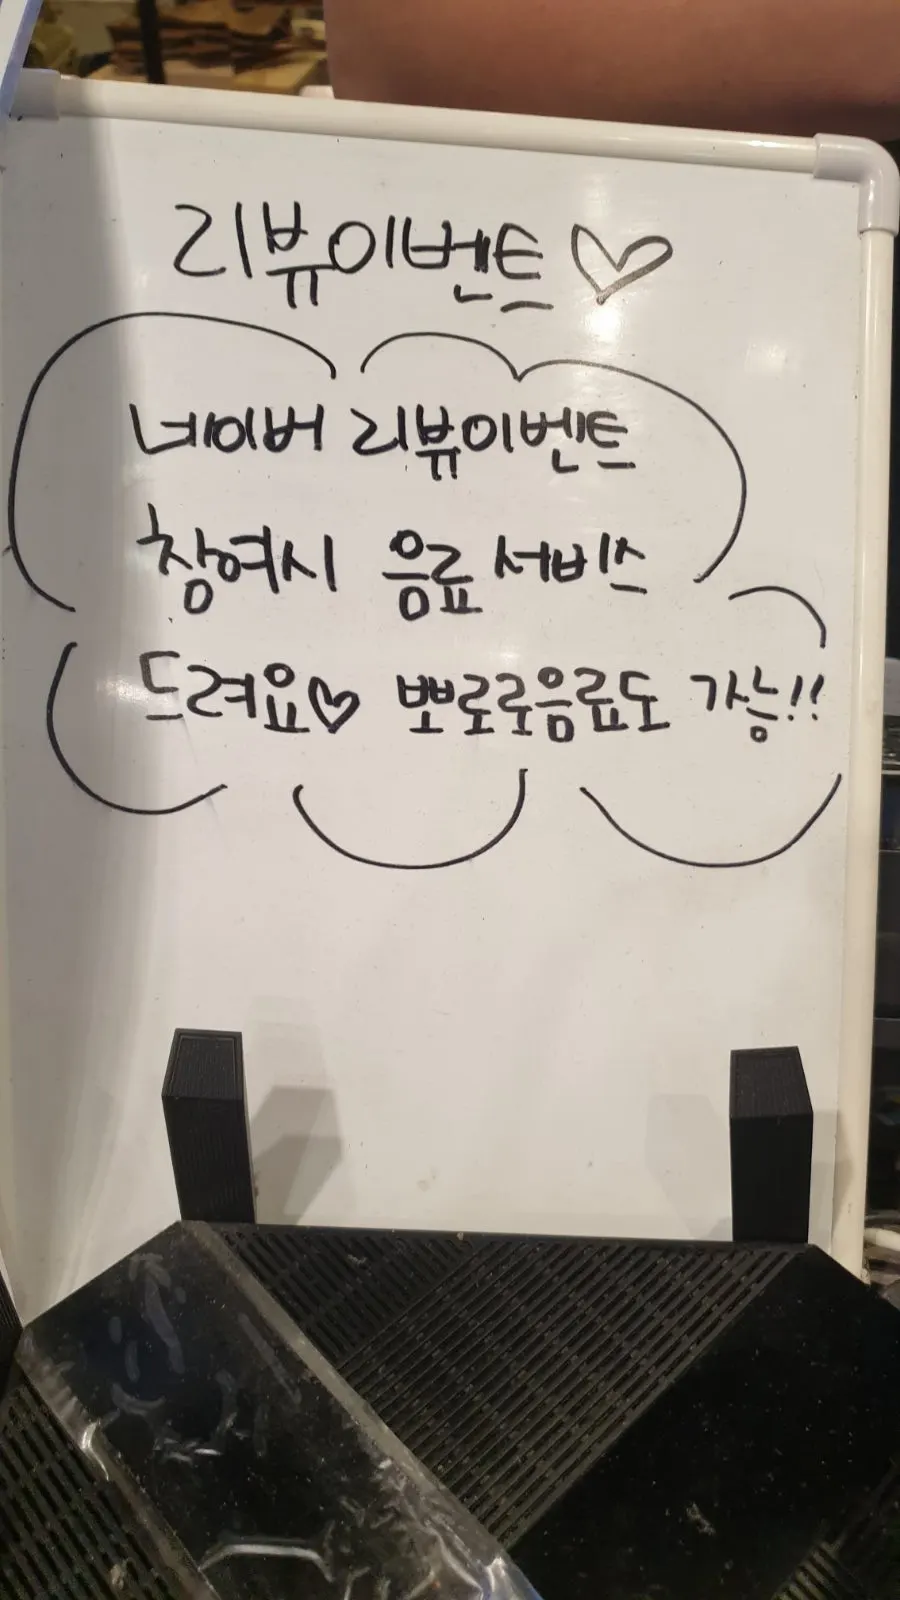 리뷰이벤트♡
네이버 리뷰이벤트
참여시 음료 서비스
드려요♡ 뽀로로음료도 가능!!